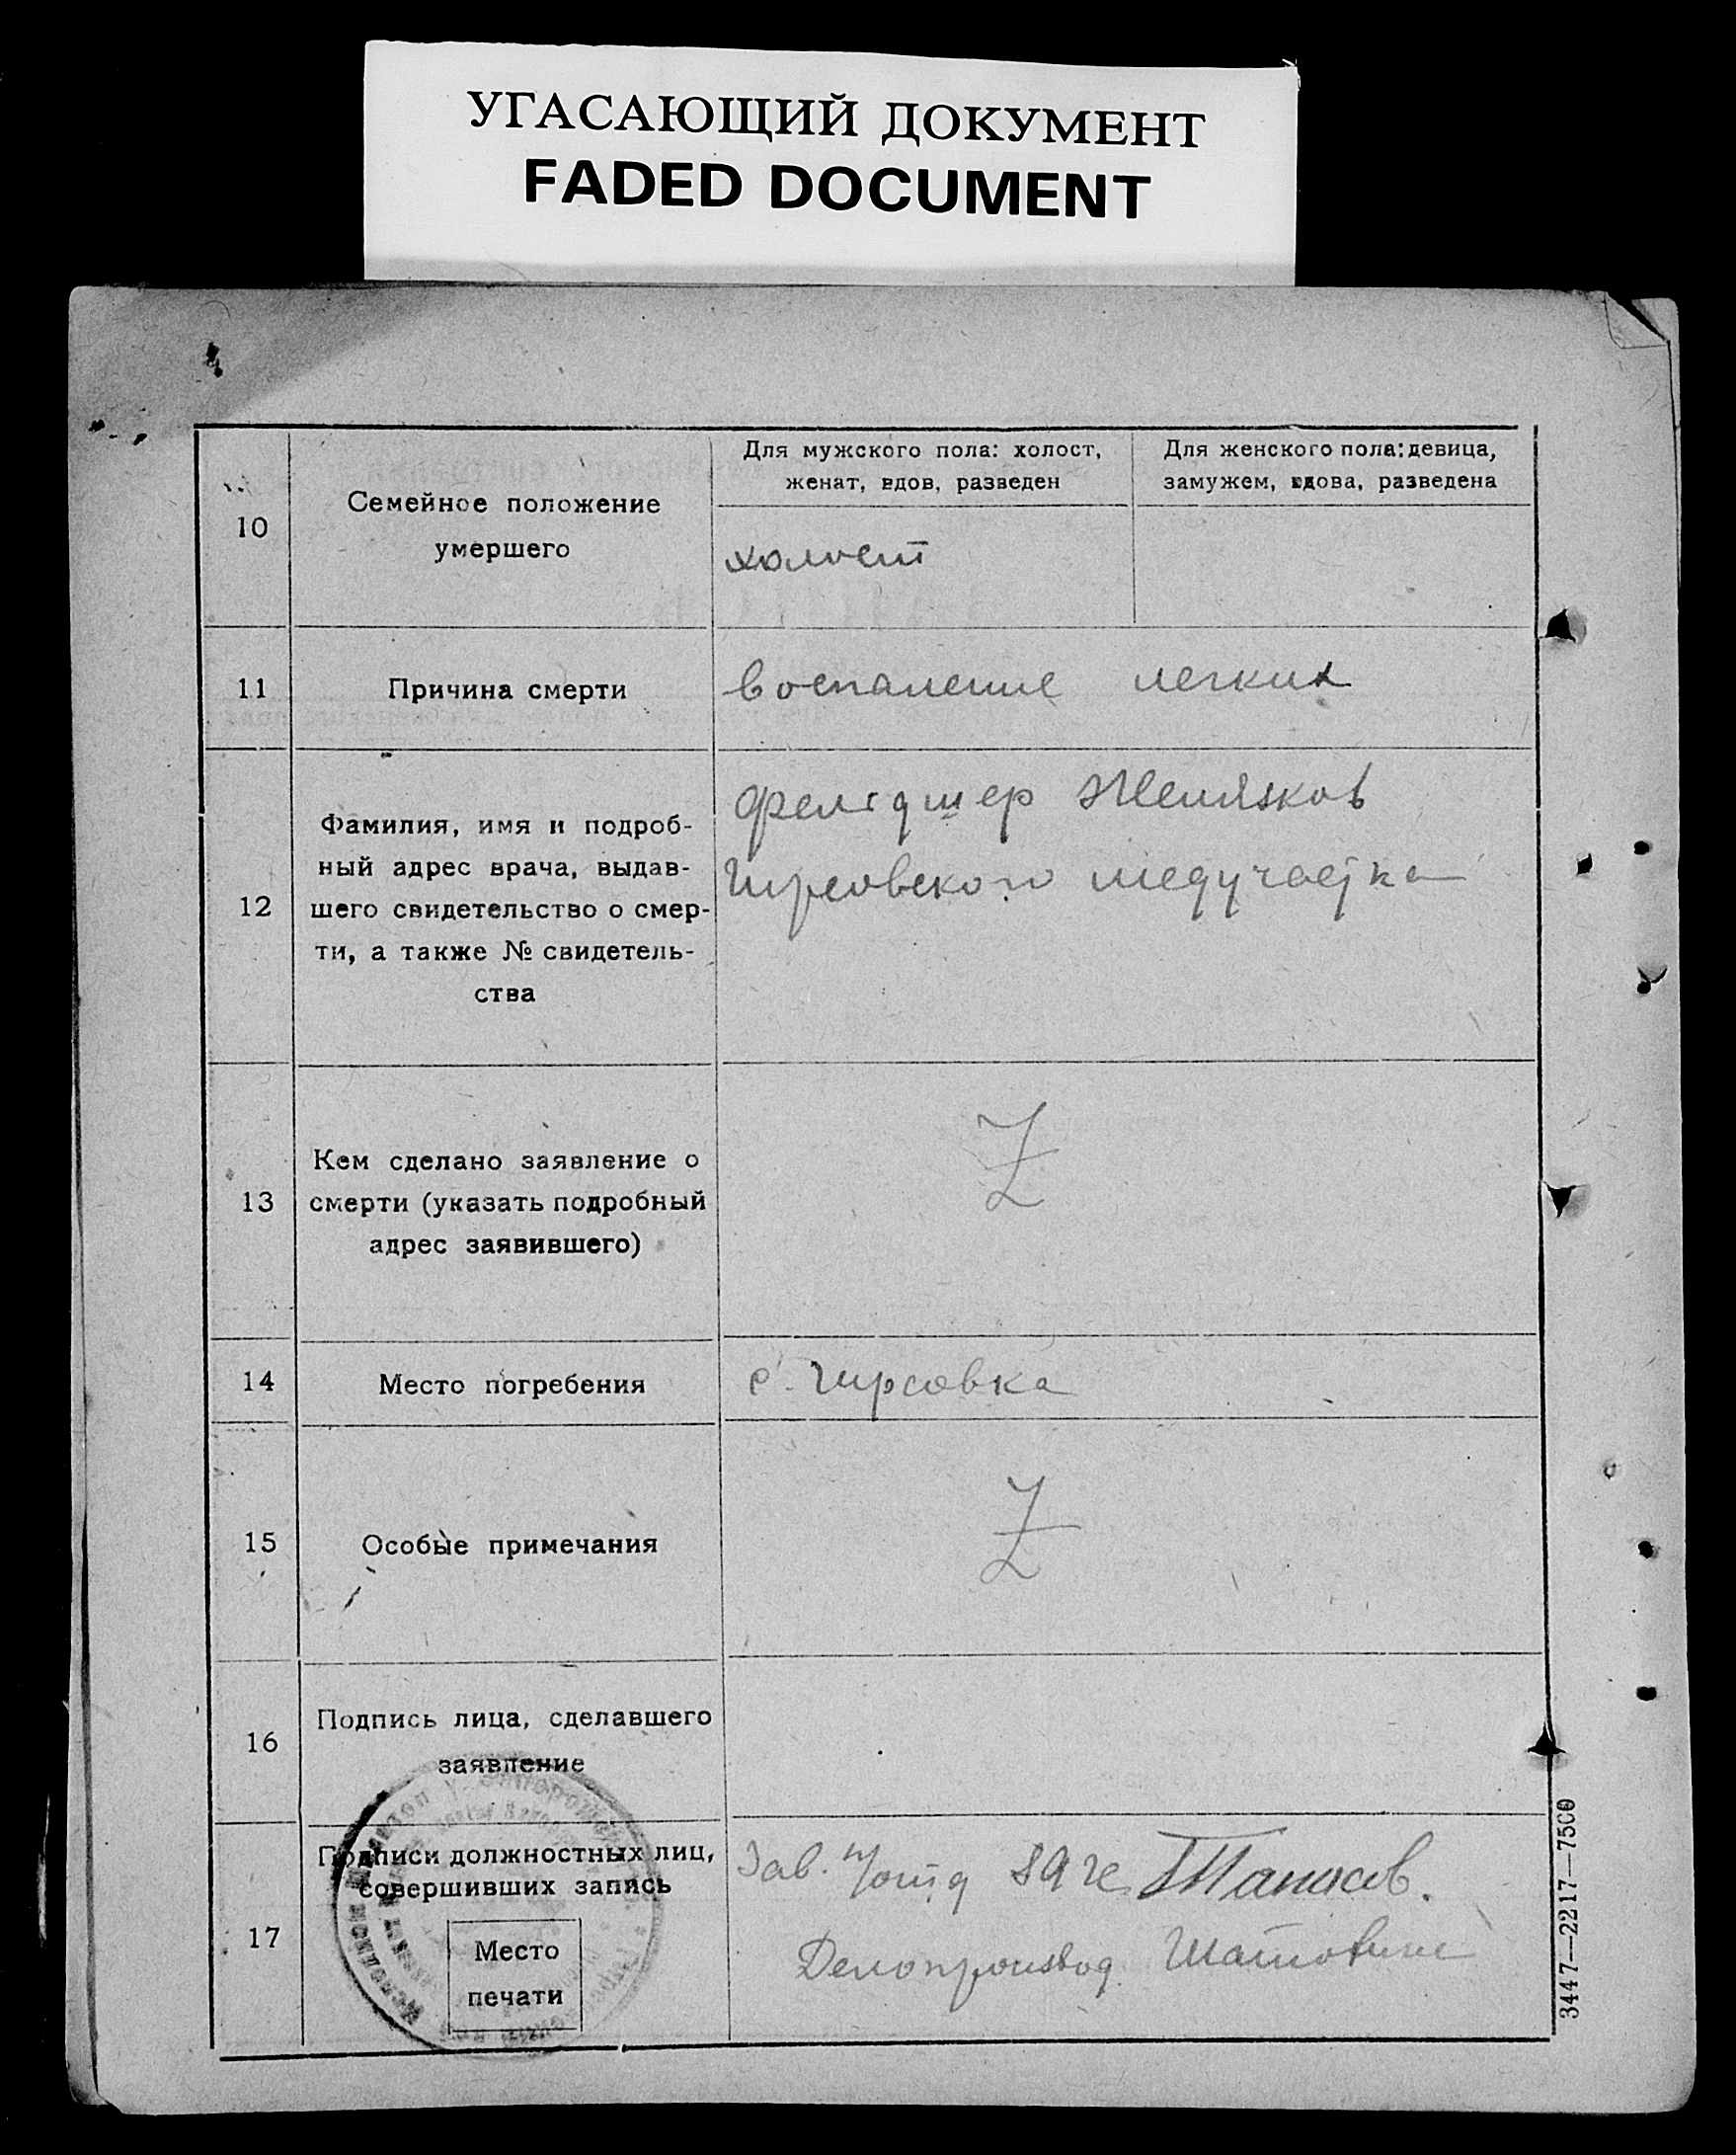 УГАСАЮЩИЙ ДОКУМЕНТ
FADED DOCUMENT
10
Семейное положение
умершего
Для мужского пола: холост,
женат, вдов, разведен
Для женского пола: девица,
замужем, вдова, разведена
холост
11
Причина смерти
воспаление легких
12
Фамилия, имя и подроб-
ный адрес врача, выдав-
шего свидетельство о смер-
ти, а также № свидетель-
ства
фельдшер Желязков
Гирсовского медучастка
13
Кем сделано заявление о
смерти (указать подробный
адрес заявившего)
Z
14
Место погребения
с. Гирсовка
15
Особые примечания
Z
16
Подпись лица, сделавшего
заявление
17
Подписи должностных лиц,
совершивших запись
Место
печати
Зав.
Делопроизвод.
3447—2217—7500